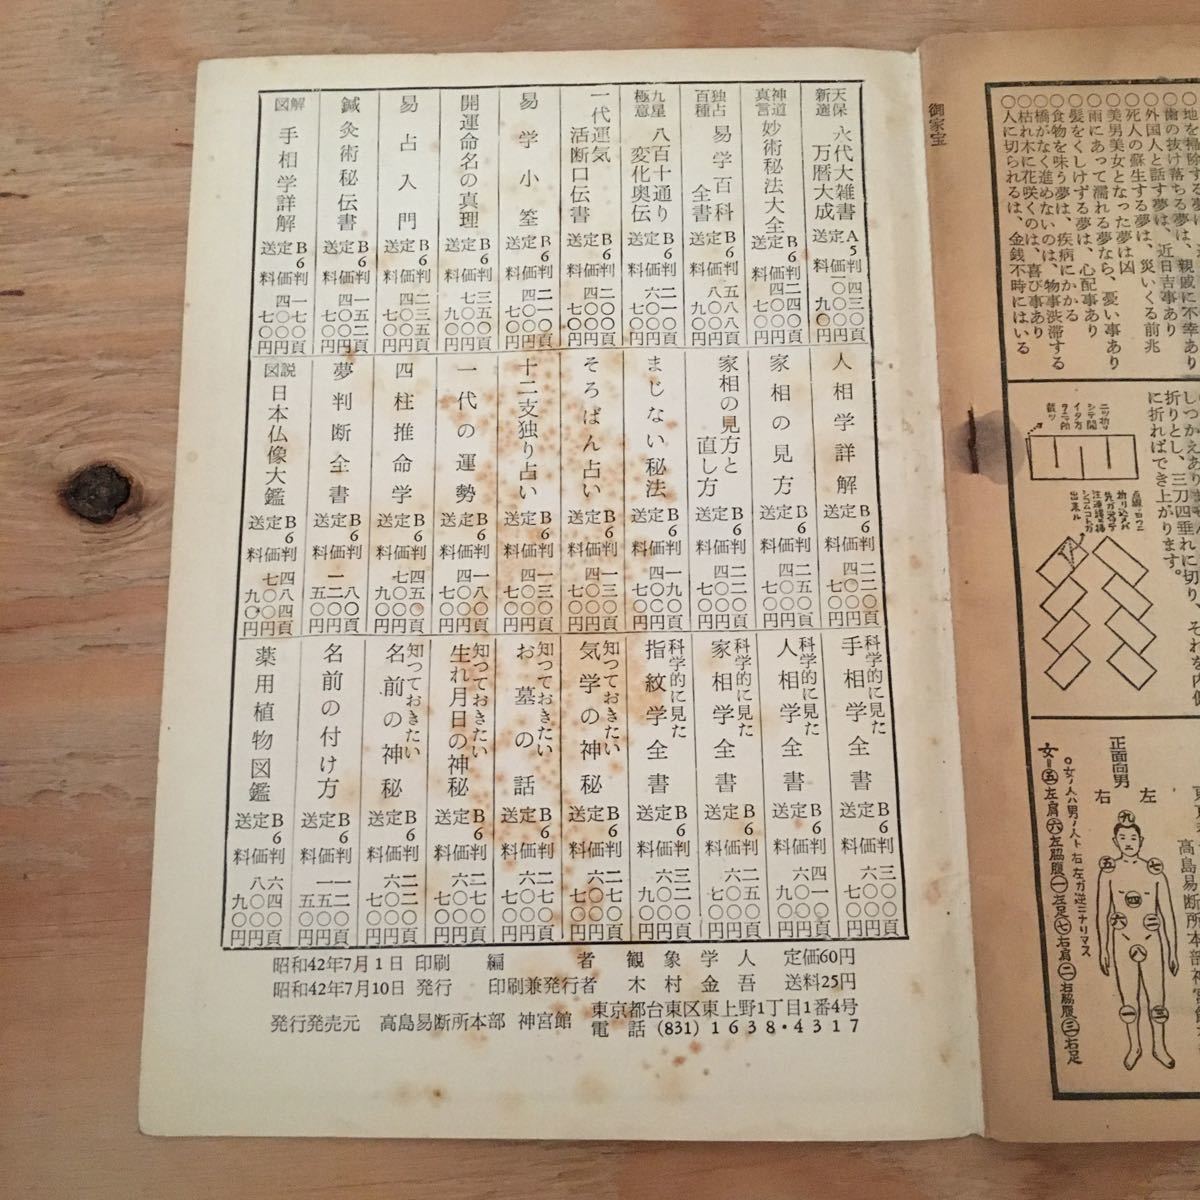 御家宝
○地を掃除する夢は、親戚に不幸あり
○歯の抜け落ちる夢は、
○外国人と話す夢は、近日吉事あり
○死人の蘇生する夢は、災いくる前兆
○美男美女となった夢は凶
○雨にあって濡れる夢なら、憂い事あり
○髪をくしけずる夢は、心配事あり
○食物を味う夢は、疾病にかかる
○橋がなく進めないのは、物事渋滞する
○枯れ木に花咲くのは、喜び事あり
○人に切られるは、金銭不時にはいる
折りとし、三刀四垂れに切り、それを内側
に折ればでき上がります。
高島易断所本部神宮館
正面向男
左
右
九
七
五
四
二
六
八
一
三
○女ノ人ハ男ノ人ト右左ガ逆ニナリマス
女＝五左肩六左脇腹一左足七右肩二右脇腹三右足
天保新選 永代大雑書万暦大成 A5判四三〇頁 定価一〇〇〇円 送料九〇円
神道真言 妙術秘法大全 B6判二四〇頁 定価四〇〇円 送料七〇円
独占百種 易学百科全書 B6判五八八頁 定価八〇〇円 送料九〇円
九星極意 八百十通り変化奥伝 B6判二一〇頁 定価六〇〇円 送料七〇円
一代運気活断口伝書 B6判二〇〇頁 定価四〇〇円 送料七〇円
易学小筌 B6判二一〇頁 定価四〇〇円 送料七〇円
開運命名の真理 B6判三五〇頁 定価七〇〇円 送料九〇円
易占入門 B6判二三五頁 定価四〇〇円 送料七〇円
鍼灸術秘伝書 B6判一五二頁 定価四〇〇円 送料七〇円
図解 手相学詳解 B6判一七〇頁 定価四〇〇円 送料七〇円
人相学詳解 B6判二二〇頁 定価四〇〇円 送料七〇円
家相の見方 B6判二五〇頁 定価四〇〇円 送料七〇円
家相の見方と直し方 B6判二二〇頁 定価四〇〇円 送料七〇円
まじない秘法 B6判一九〇頁 定価四〇〇円 送料七〇円
そろばん占い B6判一三〇頁 定価四〇〇円 送料七〇円
十二支独り占い B6判一三〇頁 定価四〇〇円 送料七〇円
一代の運勢 B6判一八〇頁 定価四〇〇円 送料七〇円
四柱推命学 B6判四五〇頁 定価七〇〇円 送料九〇円
夢判断全書 B6判一八〇頁 定価一二〇円 送料五〇円
図説 日本仏像大鑑 B6判四八四頁 定価七〇〇円 送料九〇円
科学的に見た手相学全書 B6判三〇〇頁 定価六〇〇円 送料七〇円
科学的に見た人相学全書 B6判四一〇頁 定価七〇〇円 送料九〇円
科学的に見た家相学全書 B6判二五〇頁 定価六〇〇円 送料七〇円
科学的に見た指紋学全書 B6判三二〇頁 定価六〇〇円 送料九〇円
知っておきたい気学の神秘 B6判二七〇頁 定価六〇〇円 送料七〇円
知っておきたいお墓の話 B6判二七〇頁 定価六〇〇円 送料七〇円
知っておきたい生れ月日の神秘 B6判二七〇頁 定価六〇〇円 送料七〇円
知っておきたい名前の神秘 B6判二二〇頁 定価六〇〇円 送料七〇円
名前の付け方 B6判一二〇頁 定価一五〇円 送料五〇円
薬用植物図鑑 B6判六四〇頁 定価八〇〇円 送料九〇円
昭和42年7月1日 印刷 編者 観象学人 定価60円
昭和42年7月10日 発行 印刷兼発行者 木村金吾 送料25円
発行発売元 高島易断所本部 神宮館 東京都台東区東上野1丁目1番4号
電話 (831) 1638・4317